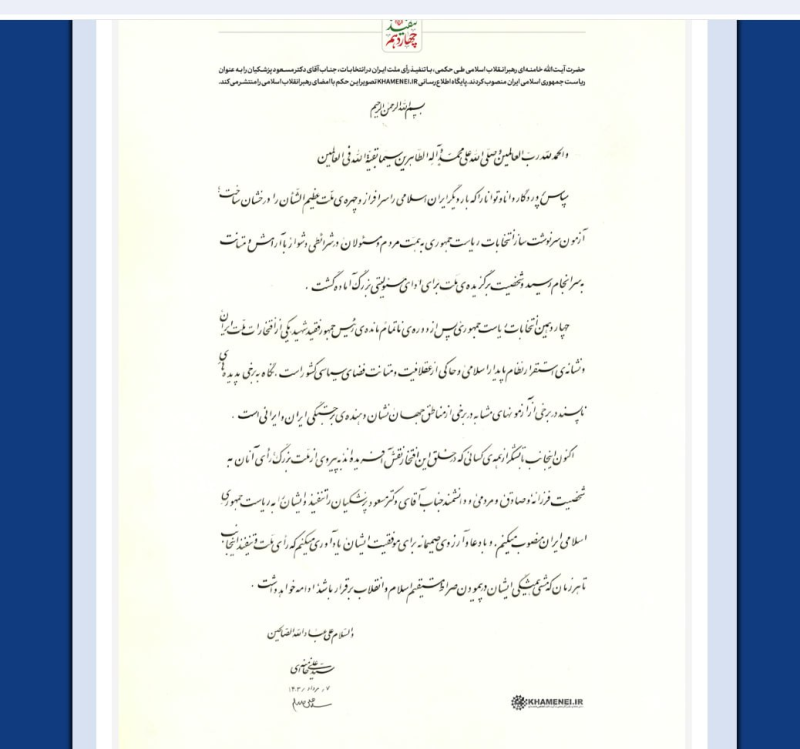 تنفیذ
چهاردهم
حضرت آیت‌الله خامنه‌ای رهبر انقلاب اسلامی طی حکمی، با تنفیذ رأی ملت ایران در انتخابات، جناب آقای دکتر مسعود پزشکیان را به عنوان
ریاست جمهوری اسلامی ایران منصوب کردند. پایگاه اطلاع‌رسانی KHAMENEI.IR تصویر این حکم با امضای رهبر انقلاب اسلامی را منتشر می‌کند.
بسم الله الرحمن الرحیم
والحمدلله رب العالمین و صلی الله علی محمد و آله الطاهرین سیما بقیة الله فی العالمین
سپاس پروردگار دانا و توانا را که بار دیگر ایران اسلامی را سرافراز و چهره‌ی ملت عظیم‌الشأن را درخشان ساخت؛
آزمون سرنوشت‌ساز انتخابات ریاست جمهوری به همت مردم و مسئولان در شرائطی دشوار با آرامش و متانت
به سرانجام رسید و شخصیت برگزیده‌ی ملت برای ادای مسئولیتی بزرگ آماده گشت.
چهاردمین انتخابات ریاست جمهوری پس از دوره‌ی ناتمام مانده‌ی رئیس جمهور فقید شهید یکی از افتخارات ملت ایران
و نشانه‌ی استقرار نظام پایدار اسلامی و حاکی از عقلانیت و متانت فضای سیاسی کشور است. نگاه به برخی پدیده‌های
ناپسند در برخی از آزمونهای مشابه در برخی از مناطق جهان نشان‌دهنده‌ی برجستگی ایران و ایرانی است.
اکنون اینجانب با تشکر از همه‌ی کسانی که در خلق این افتخار نقش آفریده‌اند به پیروی از ملت بزرگ، رأی آنان به
شخصیت فرزانه و صادق و مردمی و دانشمند جناب آقای دکتر مسعود پزشکیان را تنفیذ و ایشان را به ریاست جمهوری
اسلامی ایران منصوب میکنم. و با دعا و آرزوی صمیمانه برای موفقیت ایشان یادآوری میکنم که رأی ملت و تنفیذ اینجانب
تا هر زمان که مشی همیشگی ایشان در پیمودن صراط مستقیم اسلام و انقلاب برقرار باشد، ادامه خواهد داشت.
والسلام علی عباد الله الصالحین
سید علی خامنه‌ای
۷ / مرداد / ۱۴۰۳
KHAMENEI.IR